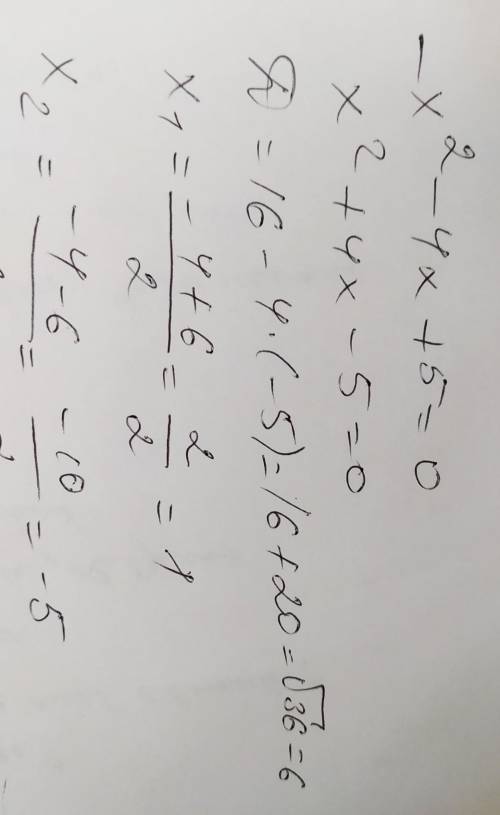 -x² - 4x + 5 = 0
x² + 4x - 5 = 0
D = 16 - 4·(-5) = 16 + 20 = √36 = 6
x₁ = (-4+6)/2 = 2/2 = 1
x₂ = (-4-6)/2 = -10/2 = -5